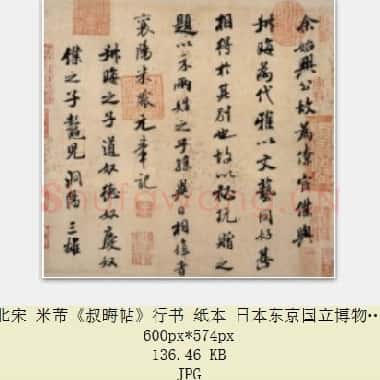 余始興公故為僚宦僕與
叔晦為代雅以文藝同好甚
相得於其別也故以秘玩贈之
題以示兩姓之子孫異日相值者
襄陽米黻元章記
叔晦之子道奴德奴慶奴
僕之子鼇兒洞陽三雄
北宋 米芾《叔晦帖》行书 纸本 日本东京国立博物…
600px*574px
136.46 KB
JPG